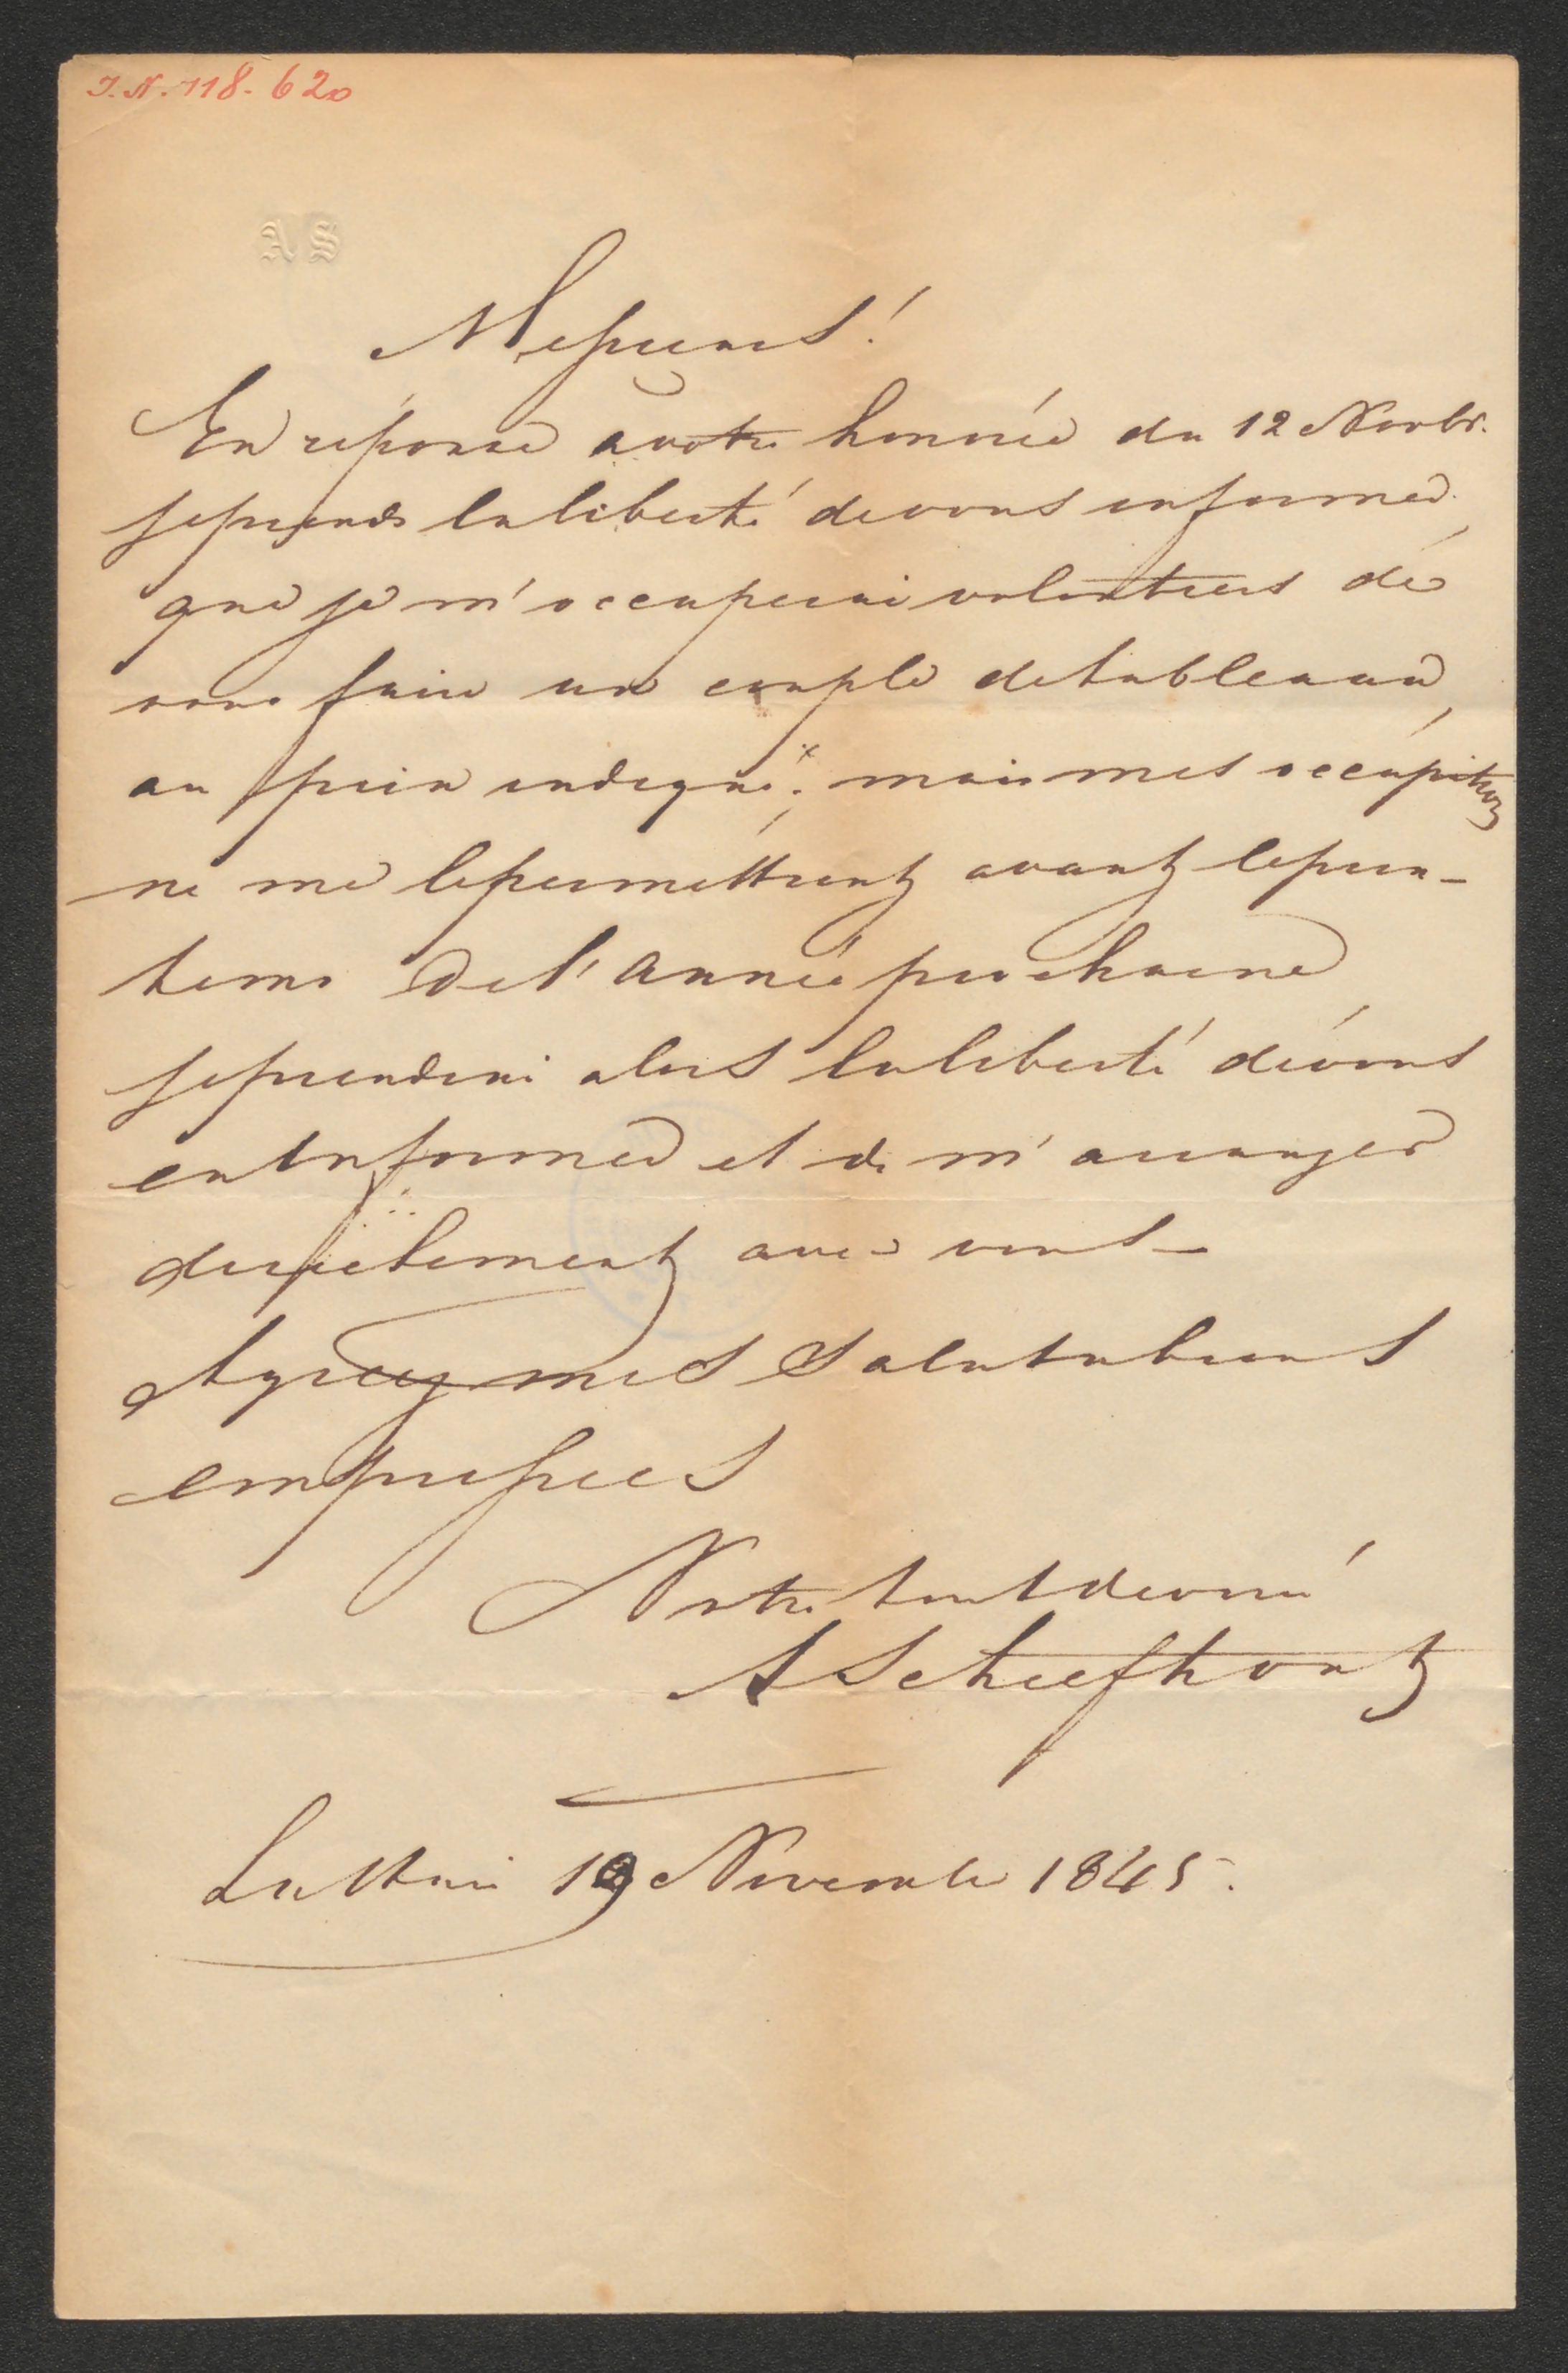 I. N. 118.620
A S
Messieurs!
En réponse a votre honorée du 12 Novbr.
je prends la liberté de vous informer
que je m'occuperai volontiers de
vous faire un couple de tableaux
au prix indiqué; mais mes occupations
ne me le permettront avant le prin-
tems de l'année prochaine
je prendrai alors la liberté de vous
en informer et de m'arranger
directement avec vous –
Agréez mes Salutations
empressées
Votre tout devoué
A Schelfhout
La Haie 19 Novembre 1845.